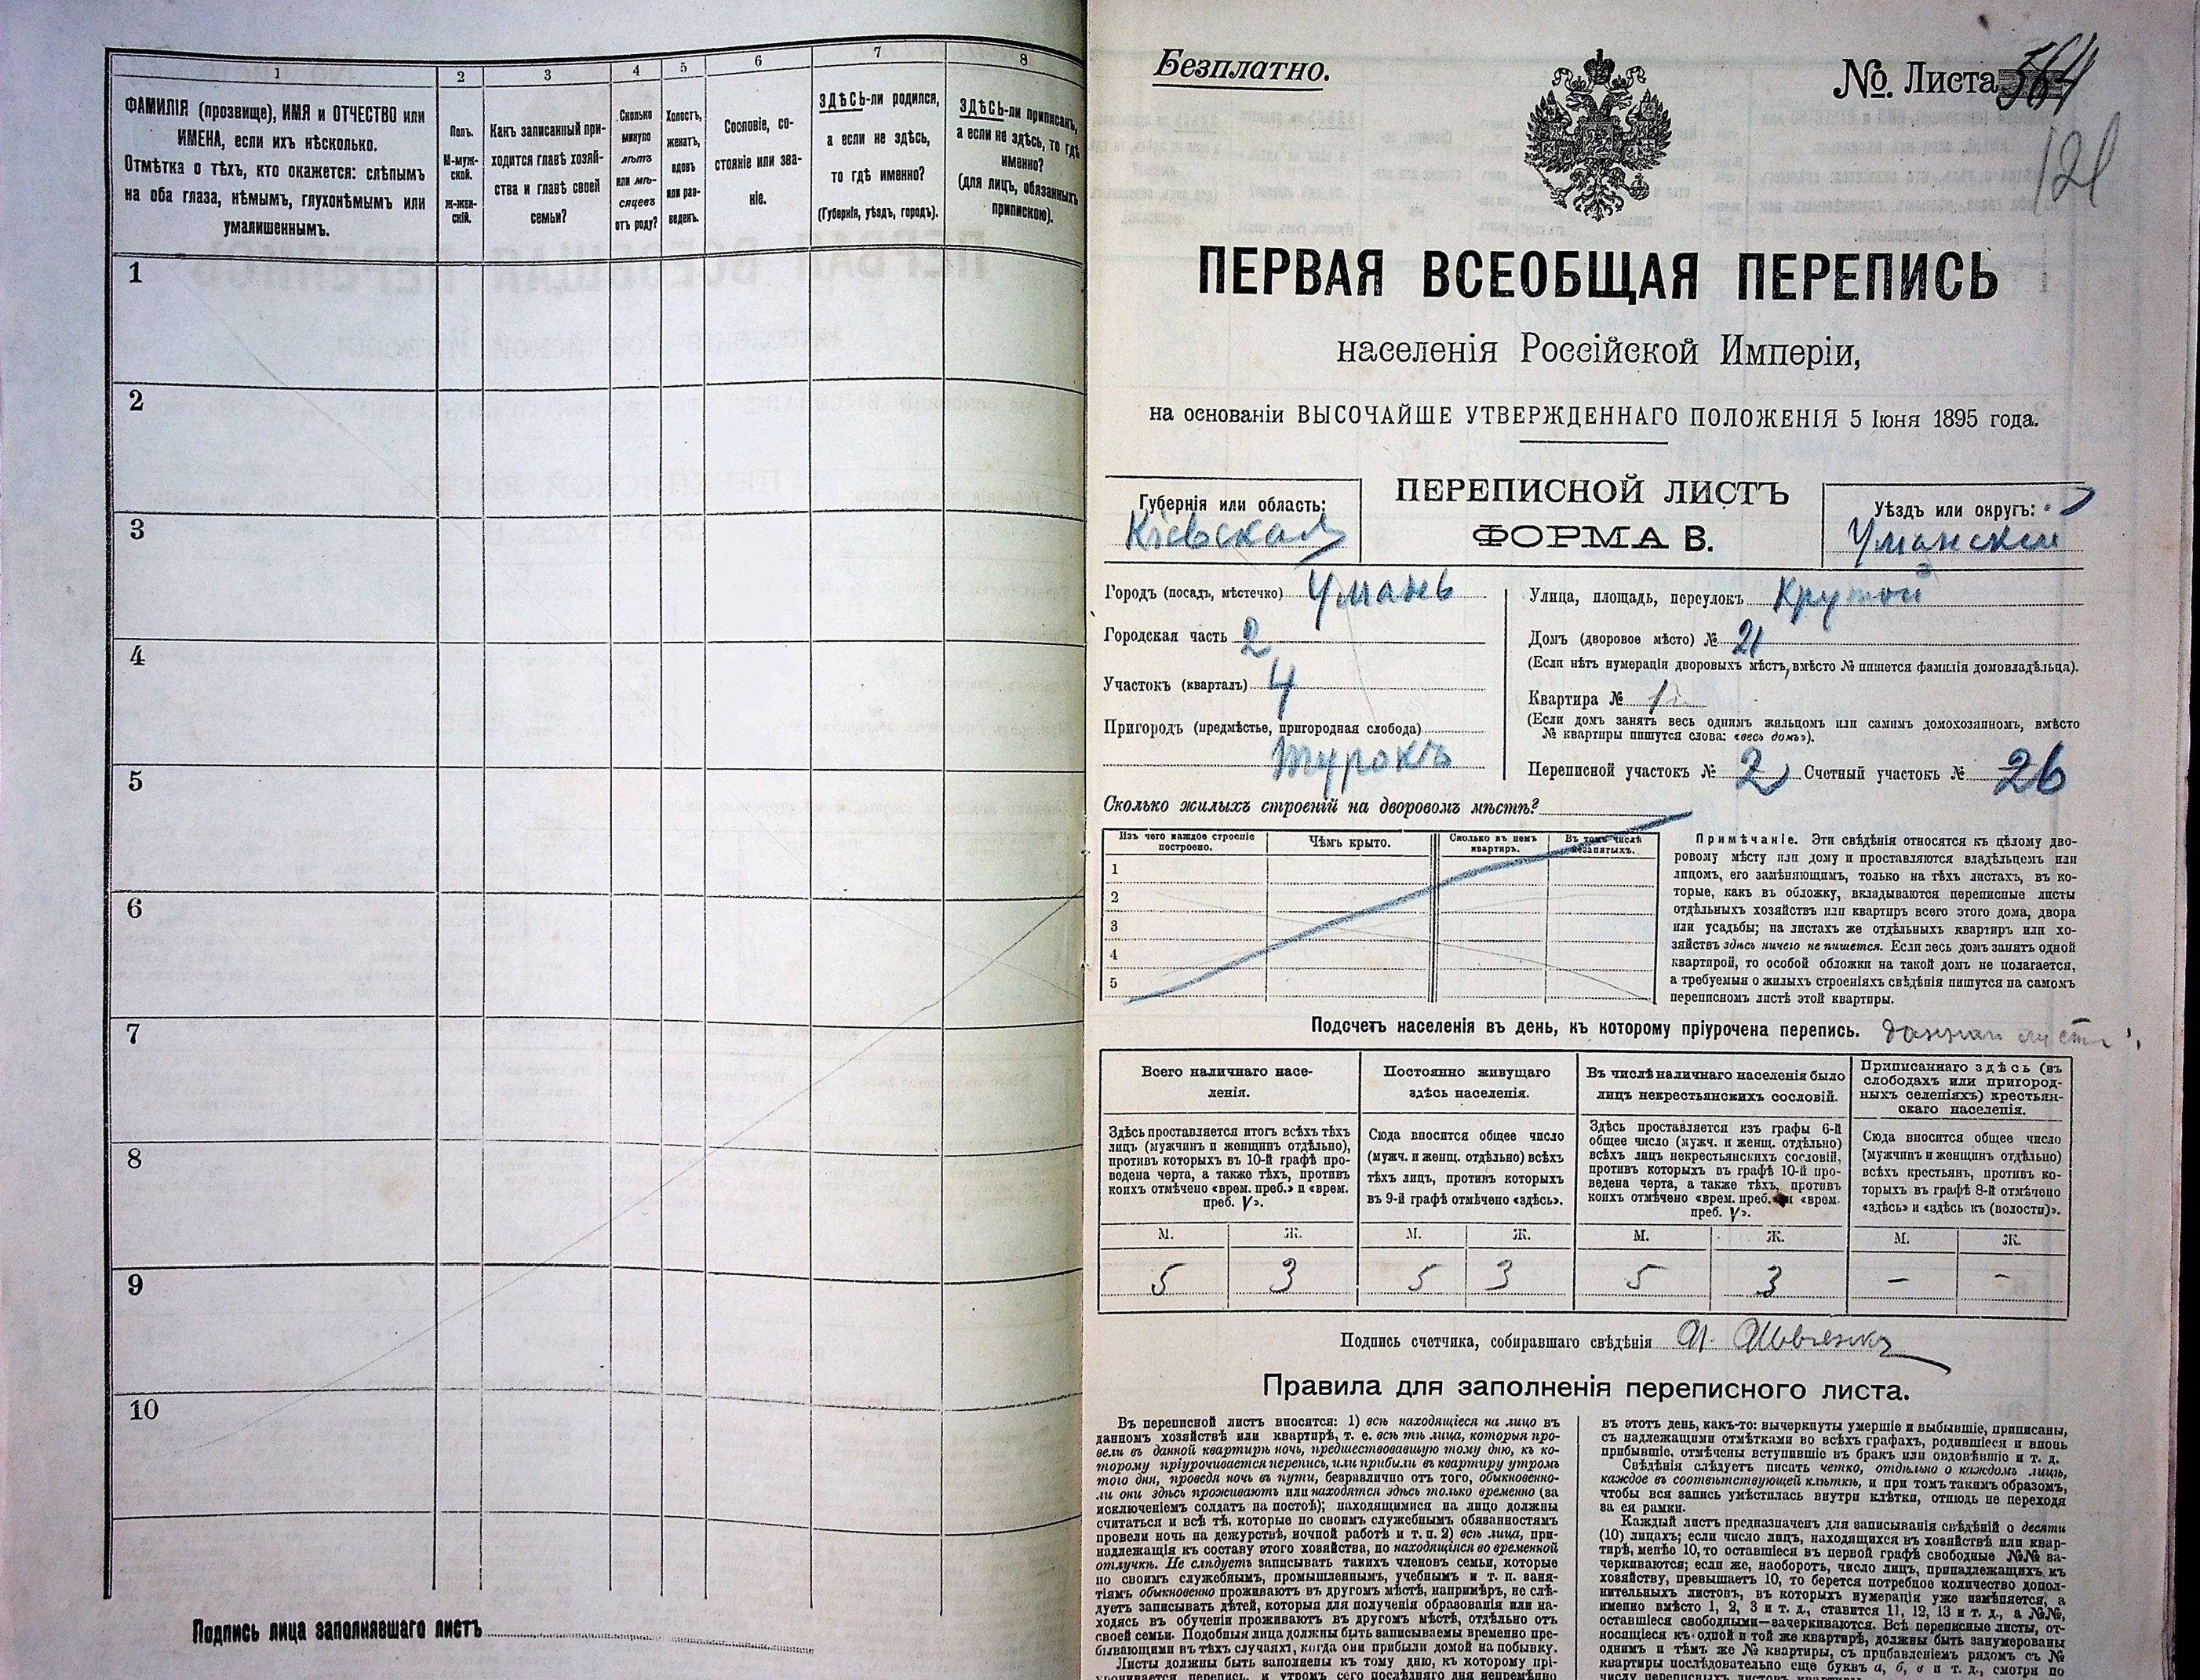 1
2
3
4
5
6
7
8
ФАМИЛІЯ (прозвище), ИМЯ и ОТЧЕСТВО или
ИМЕНА, если ихъ нѣсколько.
Отмѣтка о тѣхъ, кто окажется: слѣпымъ
на оба глаза, нѣмымъ, глухонѣмымъ или
умалишеннымъ.
Полъ.
М-муж-
ской.
Ж-жен-
скій.
Какъ записанный при-
ходится главѣ хозяй-
ства и главѣ своей
семьи?
Сколько
минуло
лѣтъ
или мѣ-
сяцевъ
отъ роду?
Холостъ,
женатъ,
вдовъ
или раз-
веденъ.
Сословіе, со-
стояніе или зва-
ніе.
ЗДѢСЬ-ли родился,
а если не здѣсь,
то гдѣ именно?
(Губернія, уѣздъ, городъ).
ЗДѢСЬ-ли приписанъ,
а если не здѣсь, то гдѣ
именно?
(для лицъ, обязанныхъ
припискою).
1
2
3
4
5
6
7
8
9
10
Подпись лица заполнявшаго листъ
Безплатно.
№. Листа 564
121
ПЕРВАЯ ВСЕОБЩАЯ ПЕРЕПИСЬ
населенія Россійской Имперіи,
на основаніи ВЫСОЧАЙШЕ УТВЕРЖДЕННАГО ПОЛОЖЕНІЯ 5 Іюня 1895 года.
Губернія или область:
Кіевская
ПЕРЕПИСНОЙ ЛИСТЪ
ФОРМА В.
Уѣздъ или округъ:
Уманскій
Городъ (посадъ, мѣстечко) Умань
Городская часть 2
Участокъ (кварталъ) 4
Пригородъ (предмѣстье, пригородная слобода)
Турокъ
Улица, площадь, переулокъ Крутой
Домъ (дворовое мѣсто) № 21
(Если нѣтъ нумераціи дворовыхъ мѣстъ, вмѣсто № пишется фамилія домовладѣльца).
Квартира №
(Если домъ занятъ весь однимъ жильцомъ или самимъ домохозяиномъ, вмѣсто
№ квартиры пишутся слова: «весь домъ»).
Переписной участокъ № 2 Счетный участокъ № 26
Сколько жилыхъ строеній на дворовомъ мѣстѣ?
Изъ чего каждое строеніе
построено.
Чѣмъ крыто.
Сколько въ немъ
квартиръ.
Въ томъ числѣ
незанятыхъ.
1
2
3
4
5
Примѣчаніе. Эти свѣдѣнія относятся къ цѣлому дво-
ровому мѣсту или дому и проставляются владѣльцемъ или
лицомъ, его замѣняющимъ, только на тѣхъ листахъ, въ ко-
торые, какъ въ обложку, вкладываются переписные листы
отдѣльныхъ хозяйствъ или квартиръ всего этого дома, двора
или усадьбы; на листахъ же отдѣльныхъ квартиръ или хо-
зяйствъ здѣсь ничего не пишется. Если весь домъ занятъ одной
квартирой, то особой обложки на такой домъ не полагается,
а требуемыя о жилыхъ строеніяхъ свѣдѣнія пишутся на самомъ
переписномъ листѣ этой квартиры.
Подсчетъ населенія въ день, къ которому пріурочена перепись.
Всего наличнаго насе-
ленія.
Постоянно живущаго
здѣсь населенія.
Въ числѣ наличнаго населенія было
лицъ некрестьянскихъ сословій.
Приписаннаго здѣсь (въ
слободахъ или пригород-
ныхъ селеніяхъ) крестьян-
скаго населенія.
Здѣсь проставляется итогъ всѣхъ тѣхъ
лицъ (мужчинъ и женщинъ отдѣльно),
противъ которыхъ въ 10-й графѣ про-
ведена черта, а также тѣхъ, противъ
коихъ отмѣчено «врем. преб.» и «врем.
преб. V».
Сюда вносится общее число
(мужч. и женщ. отдѣльно) всѣхъ
тѣхъ лицъ, противъ которыхъ
въ 9-й графѣ отмѣчено «здѣсь».
Здѣсь проставляется изъ графы 6-й
общее число (мужч. и женщ. отдѣльно)
всѣхъ лицъ некрестьянскихъ сословій,
противъ которыхъ въ графѣ 10-й про-
ведена черта, а также тѣхъ, противъ
коихъ отмѣчено «врем. преб.» и «врем.
преб. V».
Сюда вносится общее число
(мужчинъ и женщинъ отдѣльно)
всѣхъ крестьянъ, противъ ко-
торыхъ въ графѣ 8-й отмѣчено
«здѣсь» и «здѣсь къ (волости)».
М. Ж. М. Ж. М. Ж. М. Ж.
5 3 5 3 5 3 – –
Подпись счетчика, собиравшаго свѣдѣнія
Правила для заполненія переписного листа.
Въ переписной листъ вносятся: 1) всѣ находящіеся на лицо въ
данномъ хозяйствѣ или квартирѣ, т. е. всѣ тѣ лица, которыя про-
вели въ данной квартирѣ ночь, предшествовавшую тому дню, къ ко-
торому пріурочивается перепись, или прибыли въ квартиру утромъ
того дня, проведя ночь въ пути, безразлично отъ того, обыкновенно-
ли они здѣсь проживаютъ или находятся здѣсь только временно (за
исключеніемъ солдатъ на постоѣ); находящимися на лицо должны
считаться и всѣ тѣ, которые по своимъ служебнымъ обязанностямъ
провели ночь на дежурствѣ, ночной работѣ и т. п. 2) всѣ лица, при-
надлежащія къ составу этого хозяйства, но находящіяся во временной
отлучкѣ. Не слѣдуетъ записывать такихъ членовъ семьи, которые
по своимъ служебнымъ, промышленнымъ, учебнымъ и т. п. заня-
тіямъ обыкновенно проживаютъ въ другомъ мѣстѣ, напримѣръ, не слѣ-
дуетъ записывать дѣтей, которыя для полученія образованія или на-
ходясь въ обученіи проживаютъ въ другомъ мѣстѣ, отдѣльно отъ
своей семьи. Подобныя лица должны быть записываемы временно пре-
бывающими въ тѣхъ случаяхъ, когда они прибыли домой на побывку.
Листы должны быть заполнены къ тому дню, къ которому прі-
урочивается перепись, и утромъ сего послѣдняго дня непремѣнно
въ этотъ день, какъ-то: вычеркнуты умершіе и выбывшіе, приписаны,
съ надлежащими отмѣтками во всѣхъ графахъ, родившіеся и вновь
прибывшіе, отмѣчены вступившіе въ бракъ или овдовѣвшіе и т. д.
Свѣдѣнія слѣдуетъ писать четко, отдѣльно о каждомъ лицѣ,
каждое въ соотвѣтствующей клѣткѣ, и при томъ такимъ образомъ,
чтобы вся запись умѣстилась внутри клѣтки, отнюдь не переходя
за ея рамки.
Каждый листъ предназначенъ для записыванія свѣдѣній о десяти
(10) лицахъ; если число лицъ, находящихся въ хозяйствѣ или квар-
тирѣ, менѣе 10, то оставшіеся въ первой графѣ свободные №№ за-
черкиваются; если же, наоборотъ, число лицъ, принадлежащихъ къ
хозяйству, превышаетъ 10, то берется потребное количество допол-
нительныхъ листовъ, въ которыхъ нумерація уже измѣняется, а
именно вмѣсто 1, 2, 3 и т. д., ставится 11, 12, 13 и т. д., а №№,
оставшіеся свободными—зачеркиваются. Всѣ переписные листы, от-
носящіеся къ одной и той же квартирѣ, должны быть занумерованы
однимъ и тѣмъ же № квартиры, съ прибавленіемъ рядомъ съ №
квартиры послѣдовательно еще буквъ а, б, в и т. д., смотря по
числу переписныхъ листовъ квартиры.